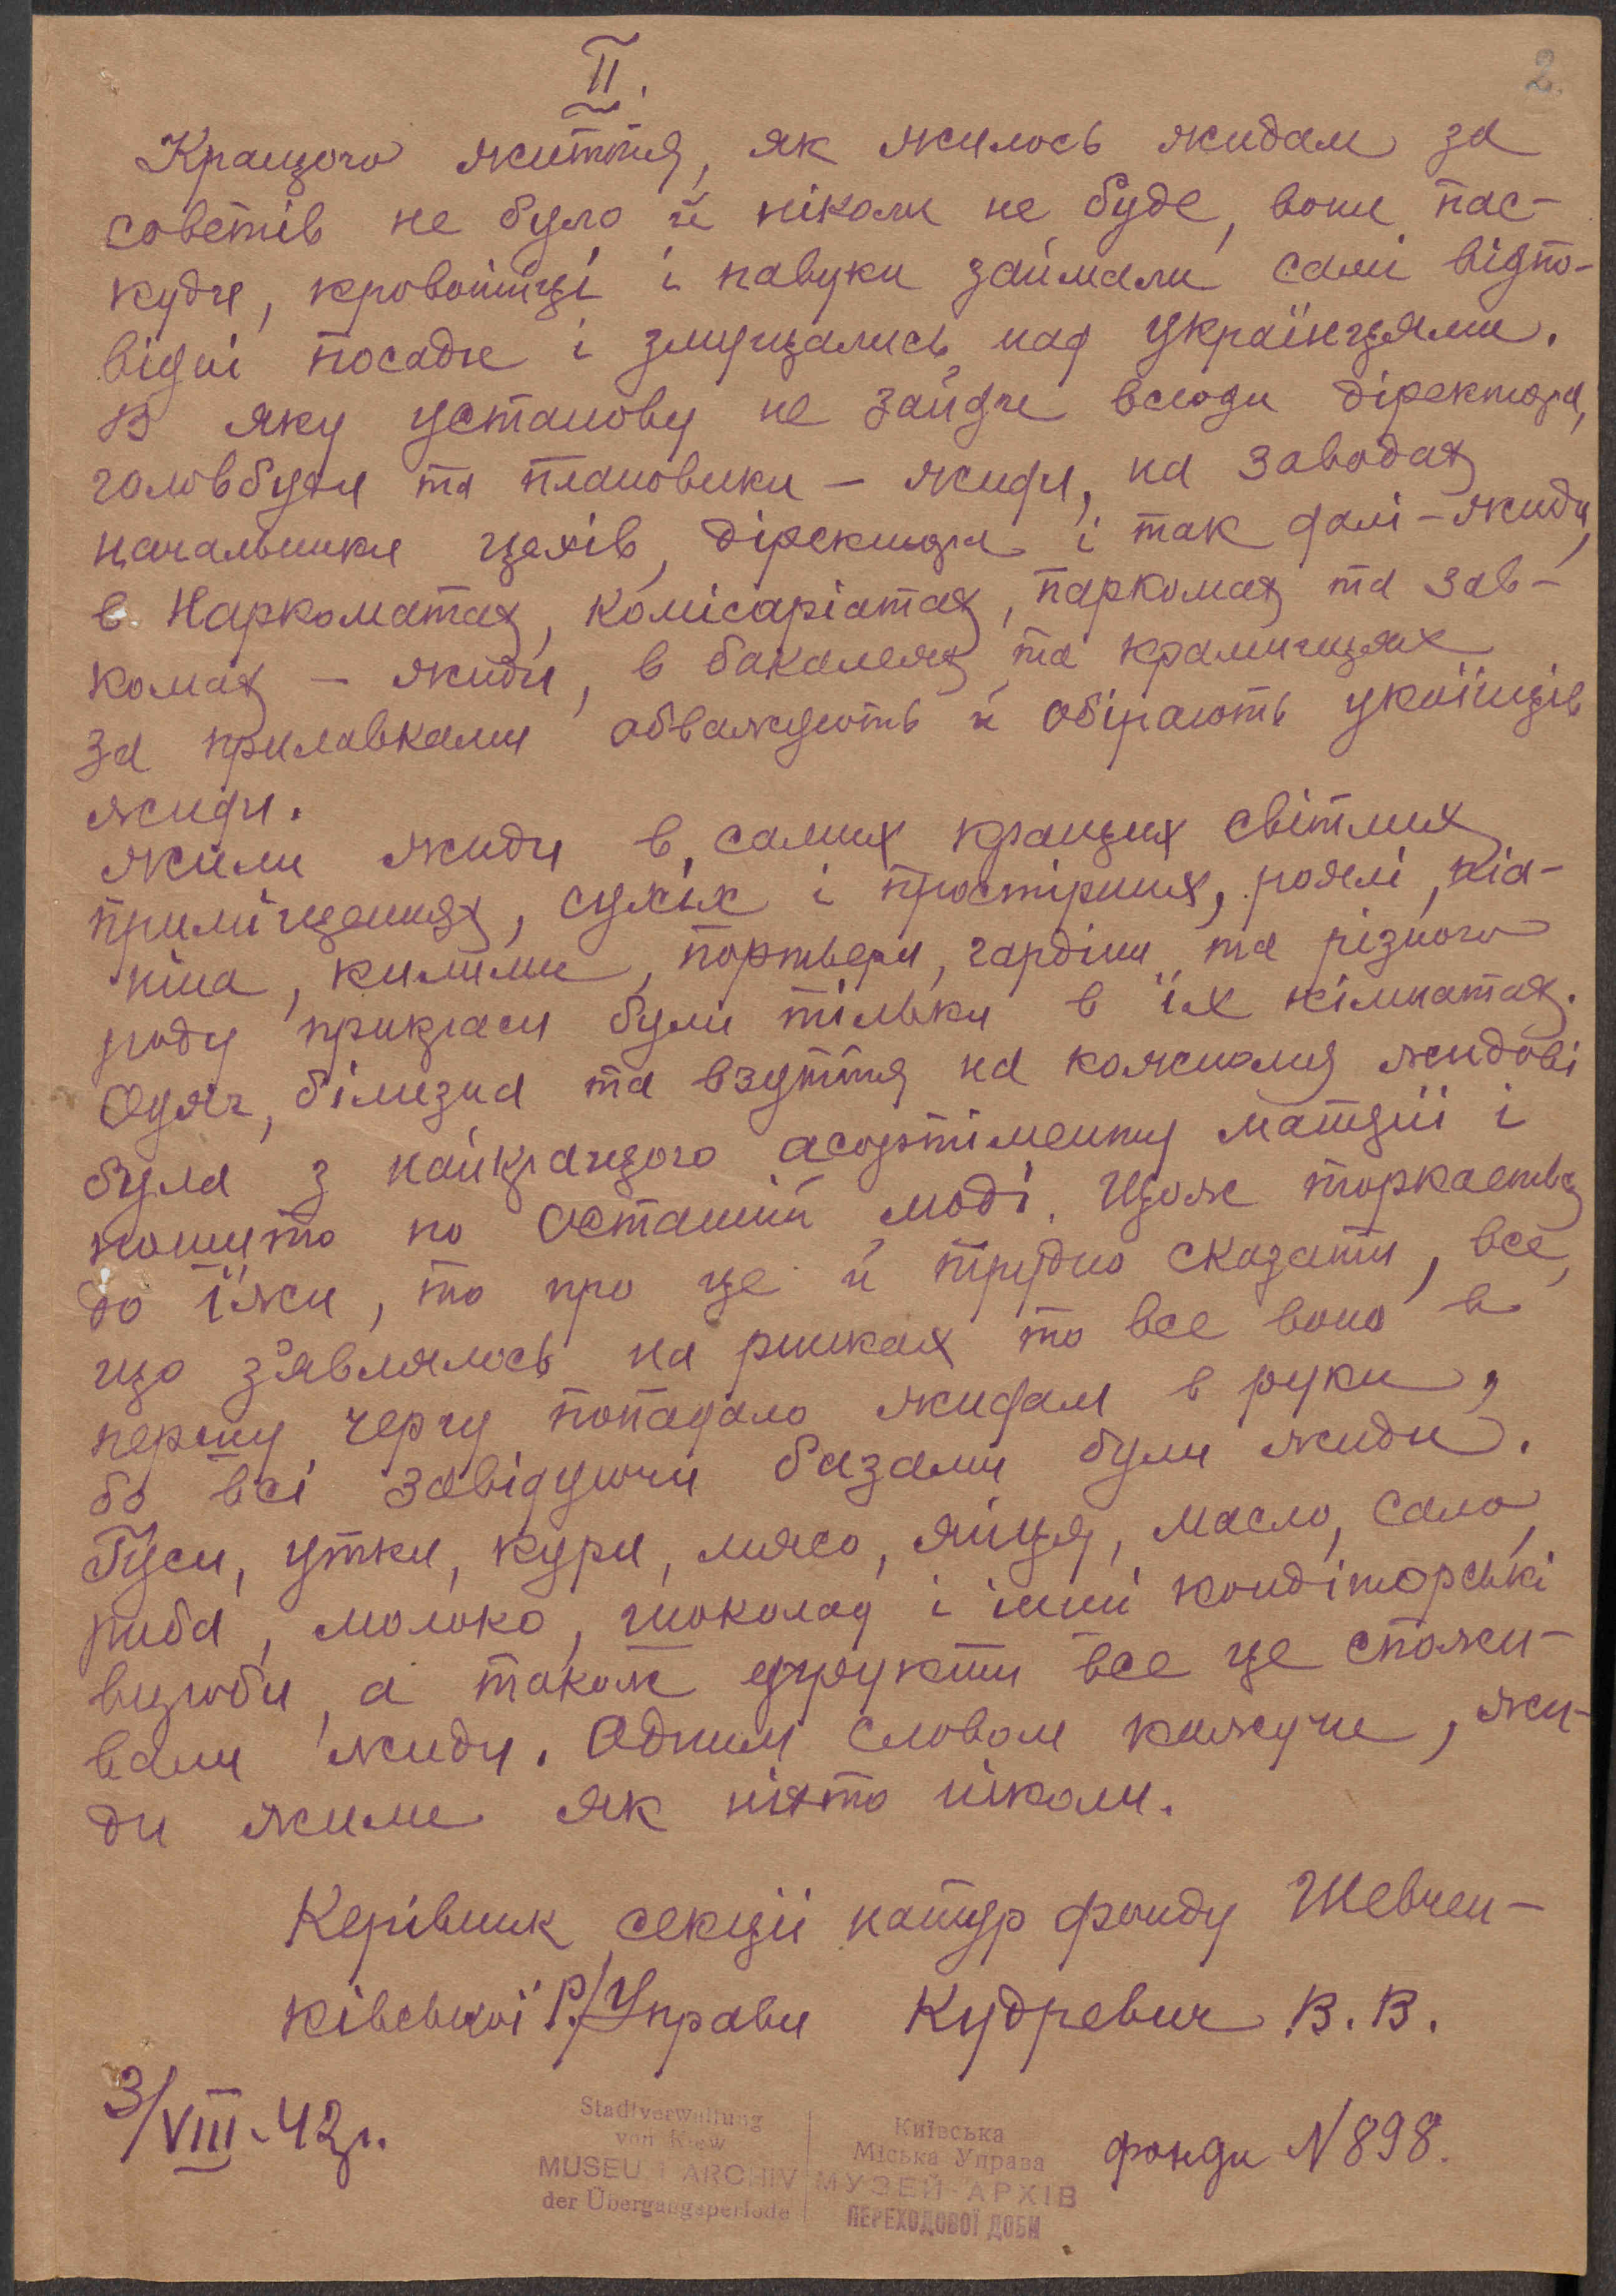 II.
2.
Кращого життя, як жилось жидам за
совєтів не було й ніколи не буде, вони пас-
кудні, кровопійці і павуки займали самі відпо-
відні посади і знущались над українцями.
В яку установу не зайди всюди діректора,
головбухи та плановики – жиди, на заводах
начальники цехів, діректори і так далі – жиди,
в Наркоматах, комісаріатах, паркомах та зав-
комах – жиди, в бакалеях та крамницях
за прилавками обважують й обірають укоїнців
жиди.
жили жиди в самих кращих світлих
приміщеннях, сухіх і простірних, роялі, піа-
ніна, килими, портьери, гардіни та різного
роду прикраси були тільки в їх кімнатах.
Одяг, білизна та взуття на кожному жидові
була з найкращого асортіменту матеріі і
пошито по останній моді. Щож торкається
до їжи, то про це й трудно сказати, все,
що з'являлось на ринках то все воно в
першу чергу попадало жидам в руки,
бо всі завідуючи базами були жиди.
Гуси, утки, кури, мясо, яйця, масло, сало,
риба, молоко, шоколад і інші кондіторські
вироби, а також фрукти все це спожи-
вали жиди. Одним словом кажучи, жи-
ди жили як ніхто ніколи.
Керівник секціі натур фонду Шевчен-
ківської Р/Управи Кудревич В. В.
3/VIII-42р.
фонди N 898.
Stadtverwaltung
von Kiew
MUSEUM ARCHIV
der Übergangsperiode
Київська
Міська Управа
МУЗЕЙ-АРХІВ
ПЕРЕХОДОВОЇ ДОБИ